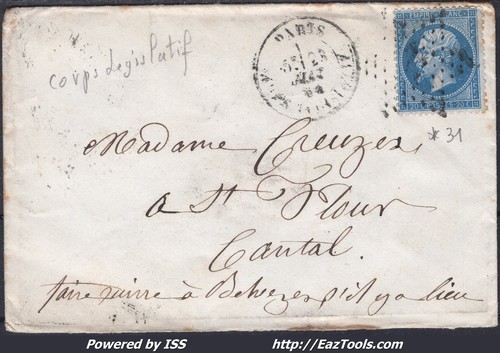 corps législatif
PARIS
EMPIRE FRANC
* 31
Madame Creuzer
a St Flour
Cantal.
faire suivre à s'il y a lieu
Powered by ISS
http://EazTools.com